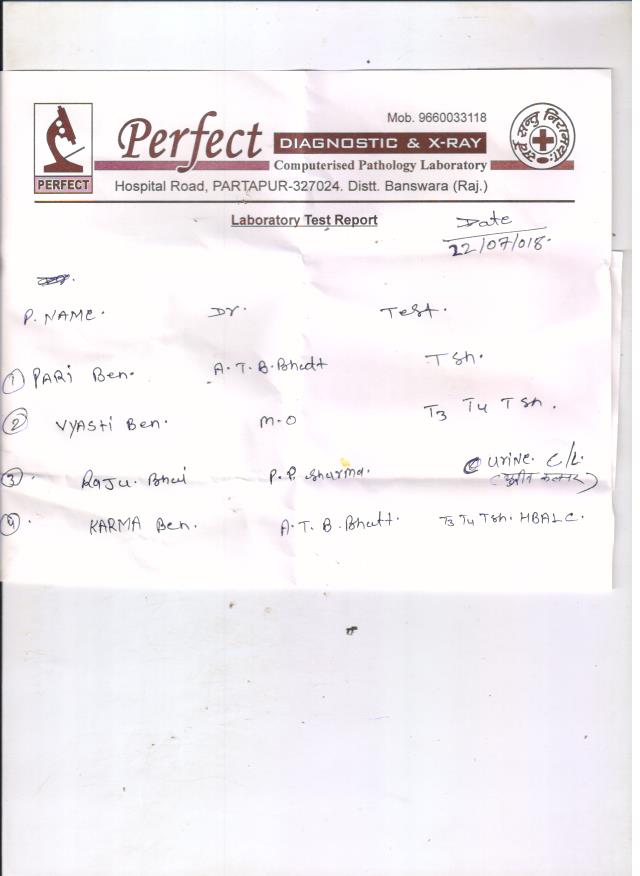 Mob. 9660033118
PERFECT
Perfect
DIAGNOSTIC & X-RAY
Computerised Pathology Laboratory
सर्वे सन्तु निरामयाः
Hospital Road, PARTAPUR-327024. Distt. Banswara (Raj.)
Laboratory Test Report
Date
22/07/018.
P. NAME. Dr. Test.
1 PARI Ben. A. T. B. Bhatt TSh.
2 VYASTI Ben. M-O T3 T4 TSh.
3. RaJU. Bhai P. P. Sharma. Urine. C/L.
(यूरीन कल्चर)
4. KARMA Ben. A. T. B. Bhatt. T3 T4 TSh. HBA1C.